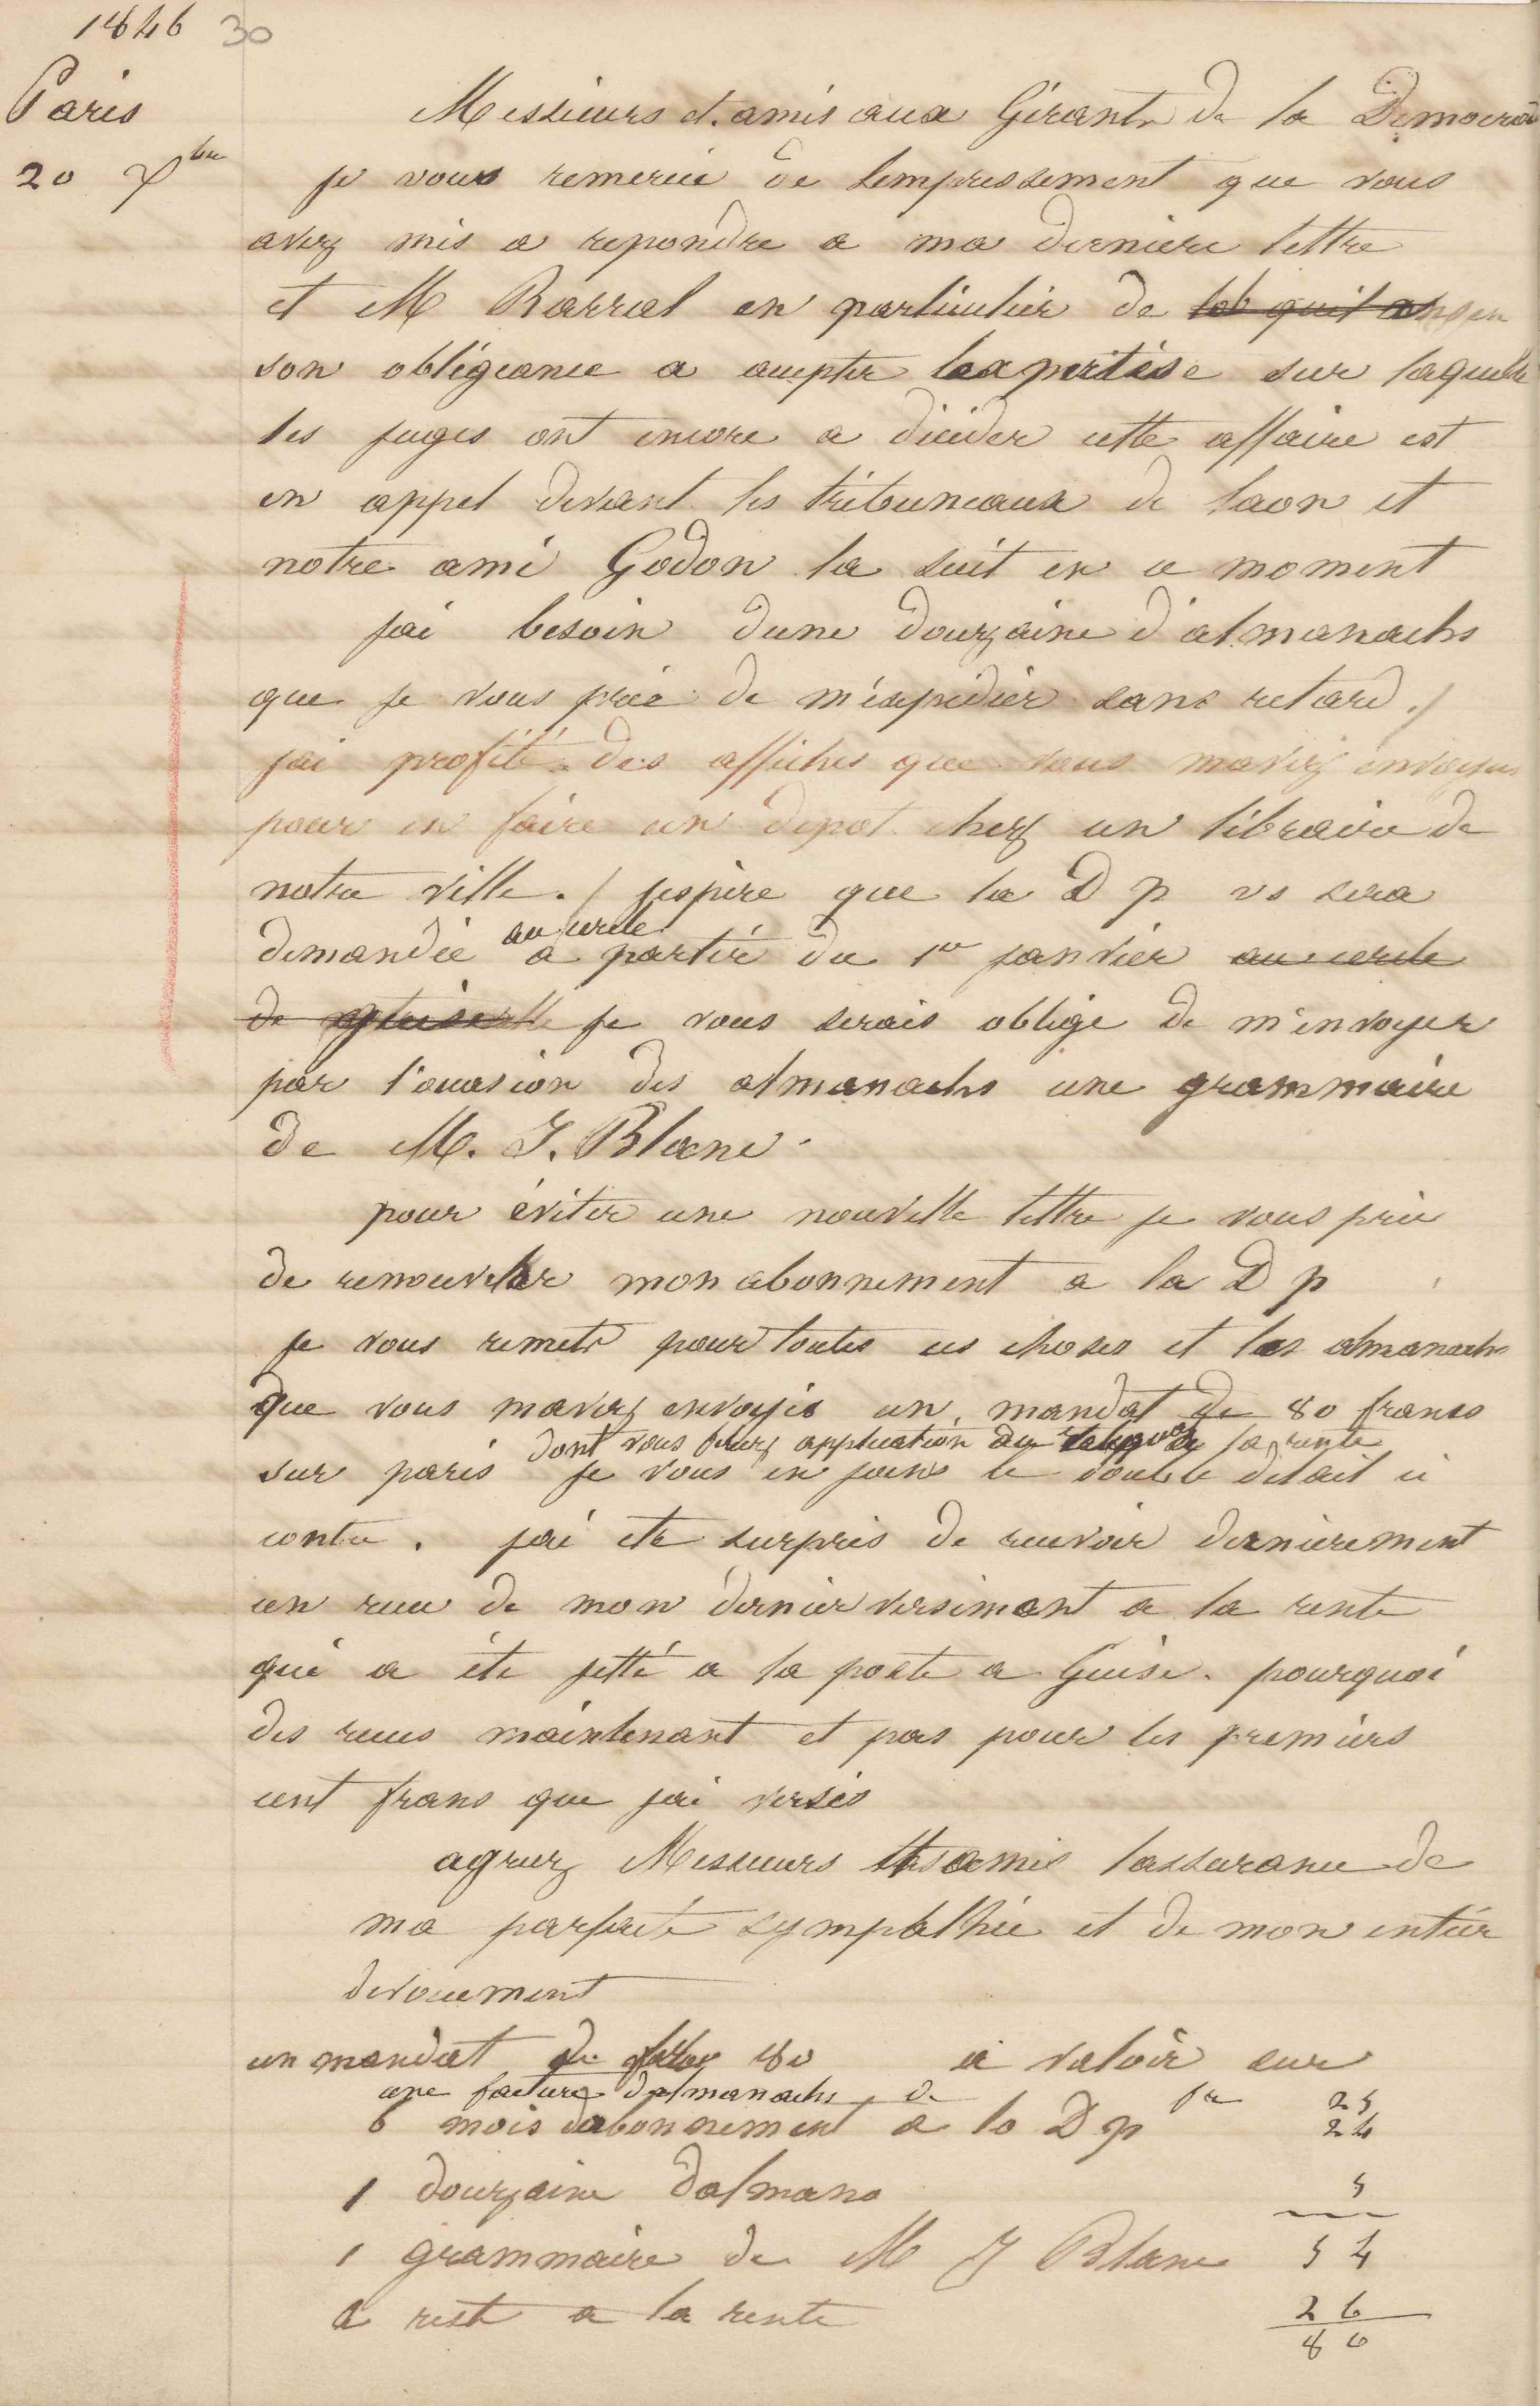 1846 30
Paris
20 Xbre
Messieurs et amis aux Gérants de la Democra
je vous remercie de lempressement que vous
avez mis a repondre a ma derniere lettre
et M Barral en particulier de
son obligeance a accepter lexpertise sur laquelle
les juges ont encore a décider cette affaire est
en appel devant les tribuneaux de laon et
notre ami Godon la suit en ce moment
jai besoin dune douzaine d'almanachs
que je vous prie de m'éxpédier sans retard ./
jai profité des affiches que vous maviez envoyés
pour en faire un depot chez un libraire de
notre ville ./ jespère que la D p vs sera
au cercle
demandée a partir du 1er janvier au cercle
de guise je vous serais obligé de m'envoyer
par l'occasion des almanachs une grammaire
de M. J. Blanc.
pour éviter une nouvelle lettre je vous prie
de renouveler mon abonnement a la D p
je vous remets pour toutes ces choses et les almanachs
que vous mavez envoyés un mandat de 80 francs
dont vous ferez application du la rente
sur paris je vous en joins le double detail ci
contre . jai ete surpris de recevoir dernierement
un recu de mon dernier versement a la rente
qui a éte jetté a la poste a Guise. pourquoi
des recus maintenant et pas pour les premiers
cent frans que jai versés
agreez Messieurs et amis lassurance de
ma parfaite sympathie et de mon entier
devouement
un mandat de 80 a valoir sur
une facture dalmanachs de fr 25
6 mois dabonnement a la D p 24
1 douzaine dalmans 5
1 grammaire de M J Blanc 54
a reste a la rente 26
80